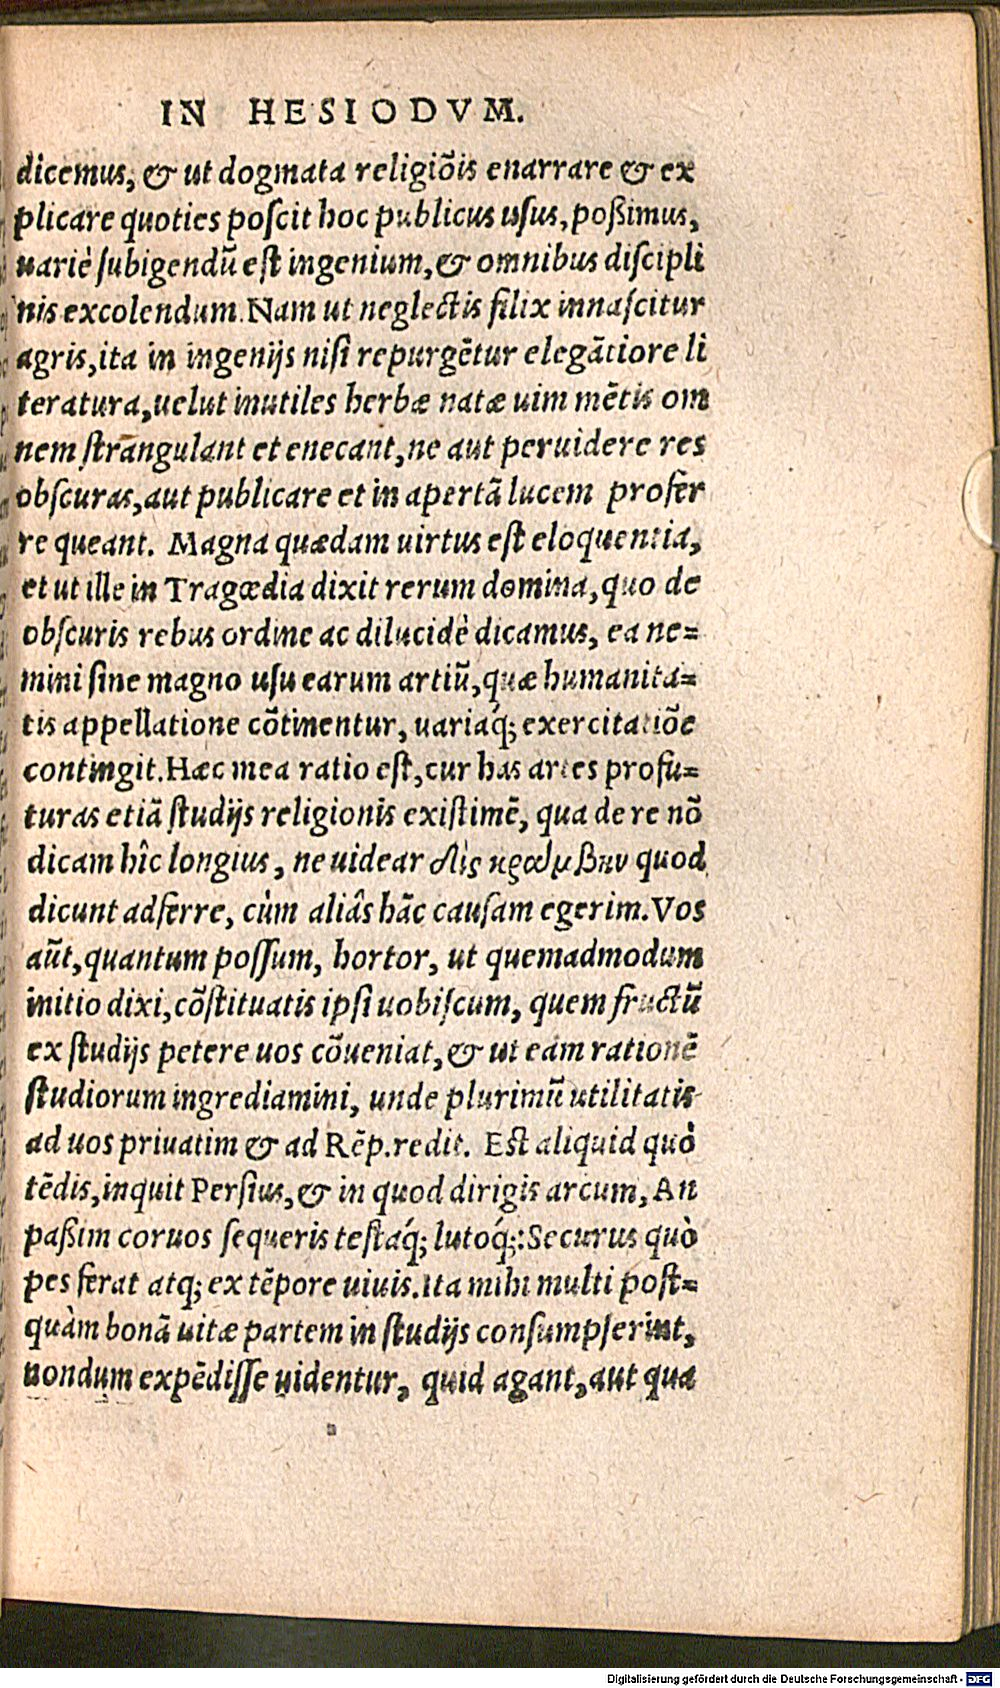 IN HESIODVM.
dicemus, & ut dogmata religiõis enarrare & ex
plicare quoties poscit hoc publicus usus, poßimus,
uariè subigendũ est ingenium, & omnibus discipli
nis excolendum. Nam ut neglectis filix innascitur
agris, ita in ingenijs nisi repurgẽtur elegãtiore li
teratura, uelut inutiles herbæ natæ uim mẽtis om
nem strangulant et enecant, ne aut peruidere res
obscuras, aut publicare et in apertã lucem profer
re queant. Magna quædam uirtus est eloquentia,
et ut ille in Tragœdia dixit rerum domina, quo de
obscuris rebus ordine ac dilucidè dicamus, ea ne=
mini sine magno usu earum artiũ, quæ humanita=
tis appellatione cõtinentur, uariaq́; exercitatiõe
contingit. Hæc mea ratio est, cur has artes profu=
turas etiã studijs religionis existimẽ, qua de re nõ
dicam hîc longius, ne uidear δὶς κράμβην quod
dicunt adferre, cùm aliâs hãc causam egerim. Vos
aũt, quantum possum, hortor, ut quemadmodum
initio dixi, cõstituatis ipsi uobiscum, quem fructũ
ex studijs petere uos cõueniat, & ut eam rationẽ
studiorum ingrediamini, unde plurimũ utilitatis
ad uos priuatim & ad Rẽp. redit. Est aliquid quò
tẽdis, inquit Persius, & in quod dirigis arcum, An
paßim coruos sequeris testaq́; lutoq́;: Securus quò
pes ferat atq; ex tẽpore uiuis. Ita mihi multi post=
quàm bonã uitæ partem in studijs consumpserint,
nondum expẽdisse uidentur, quid agant, aut qua
Digitalisierung gefördert durch die Deutsche Forschungsgemeinschaft - DFG